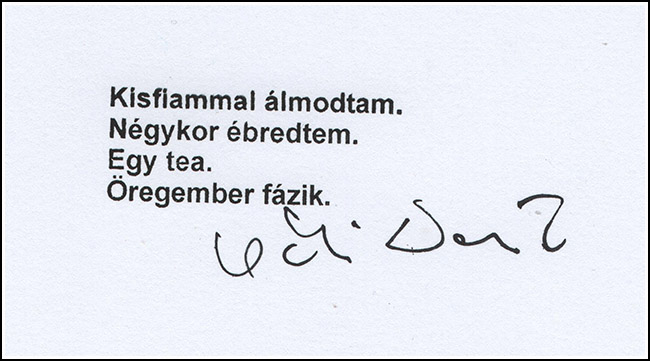 Kisfiammal álmodtam.
Négykor ébredtem.
Egy tea.
Öregember fázik.